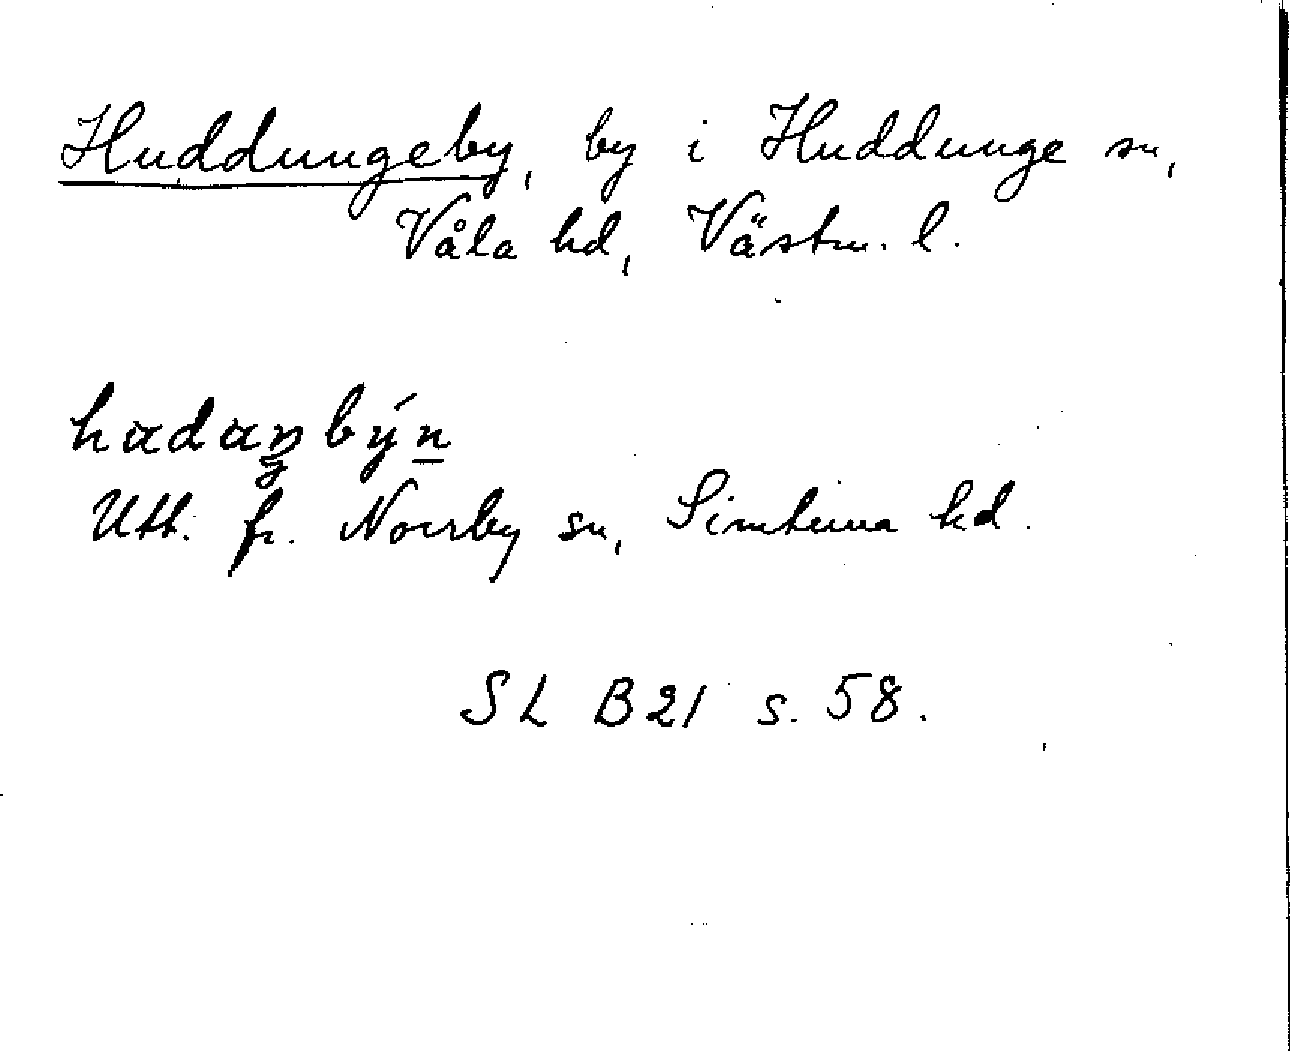 Huddungeby, by i Huddunge sn,
Våla hd, Västm. l.
hadaŋbýn
Utt. fr. Norrby sn, Simtuna hd.
SL B21 s. 58.